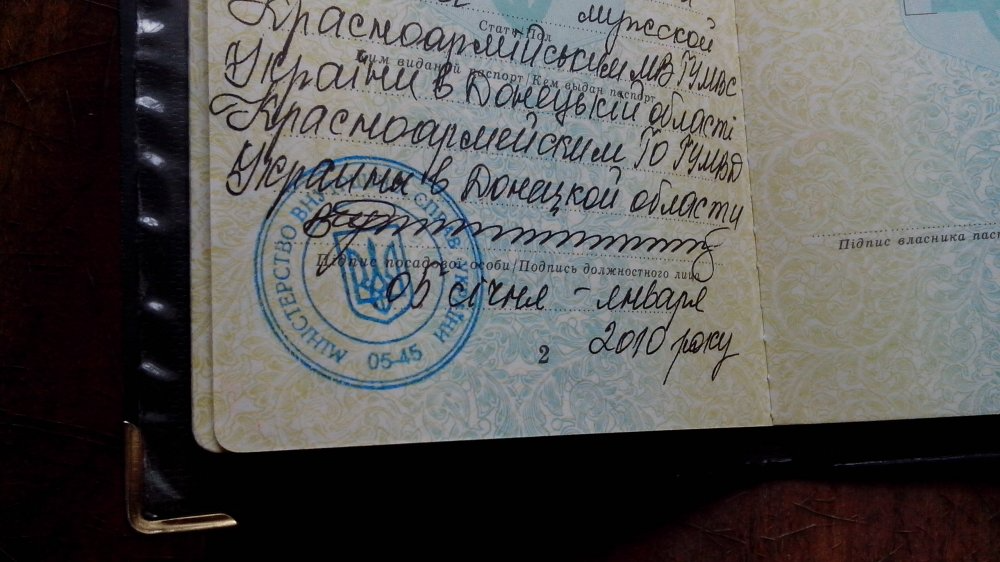 мужской
Стать/Пол
Красноармійським МВ ГУМВС
Ким виданий паспорт/Кем выдан паспорт
України в Донецькій області
Красноармейским ГО ГУМВД
Украины в Донецкой области
Підпис посадової особи/Подпись должностного лица
05 січня - января
2010 року
2
МІНІСТЕРСТВО ВНУТРІШНІХ СПРАВ УКРАЇНИ
05-45
Підпис власника